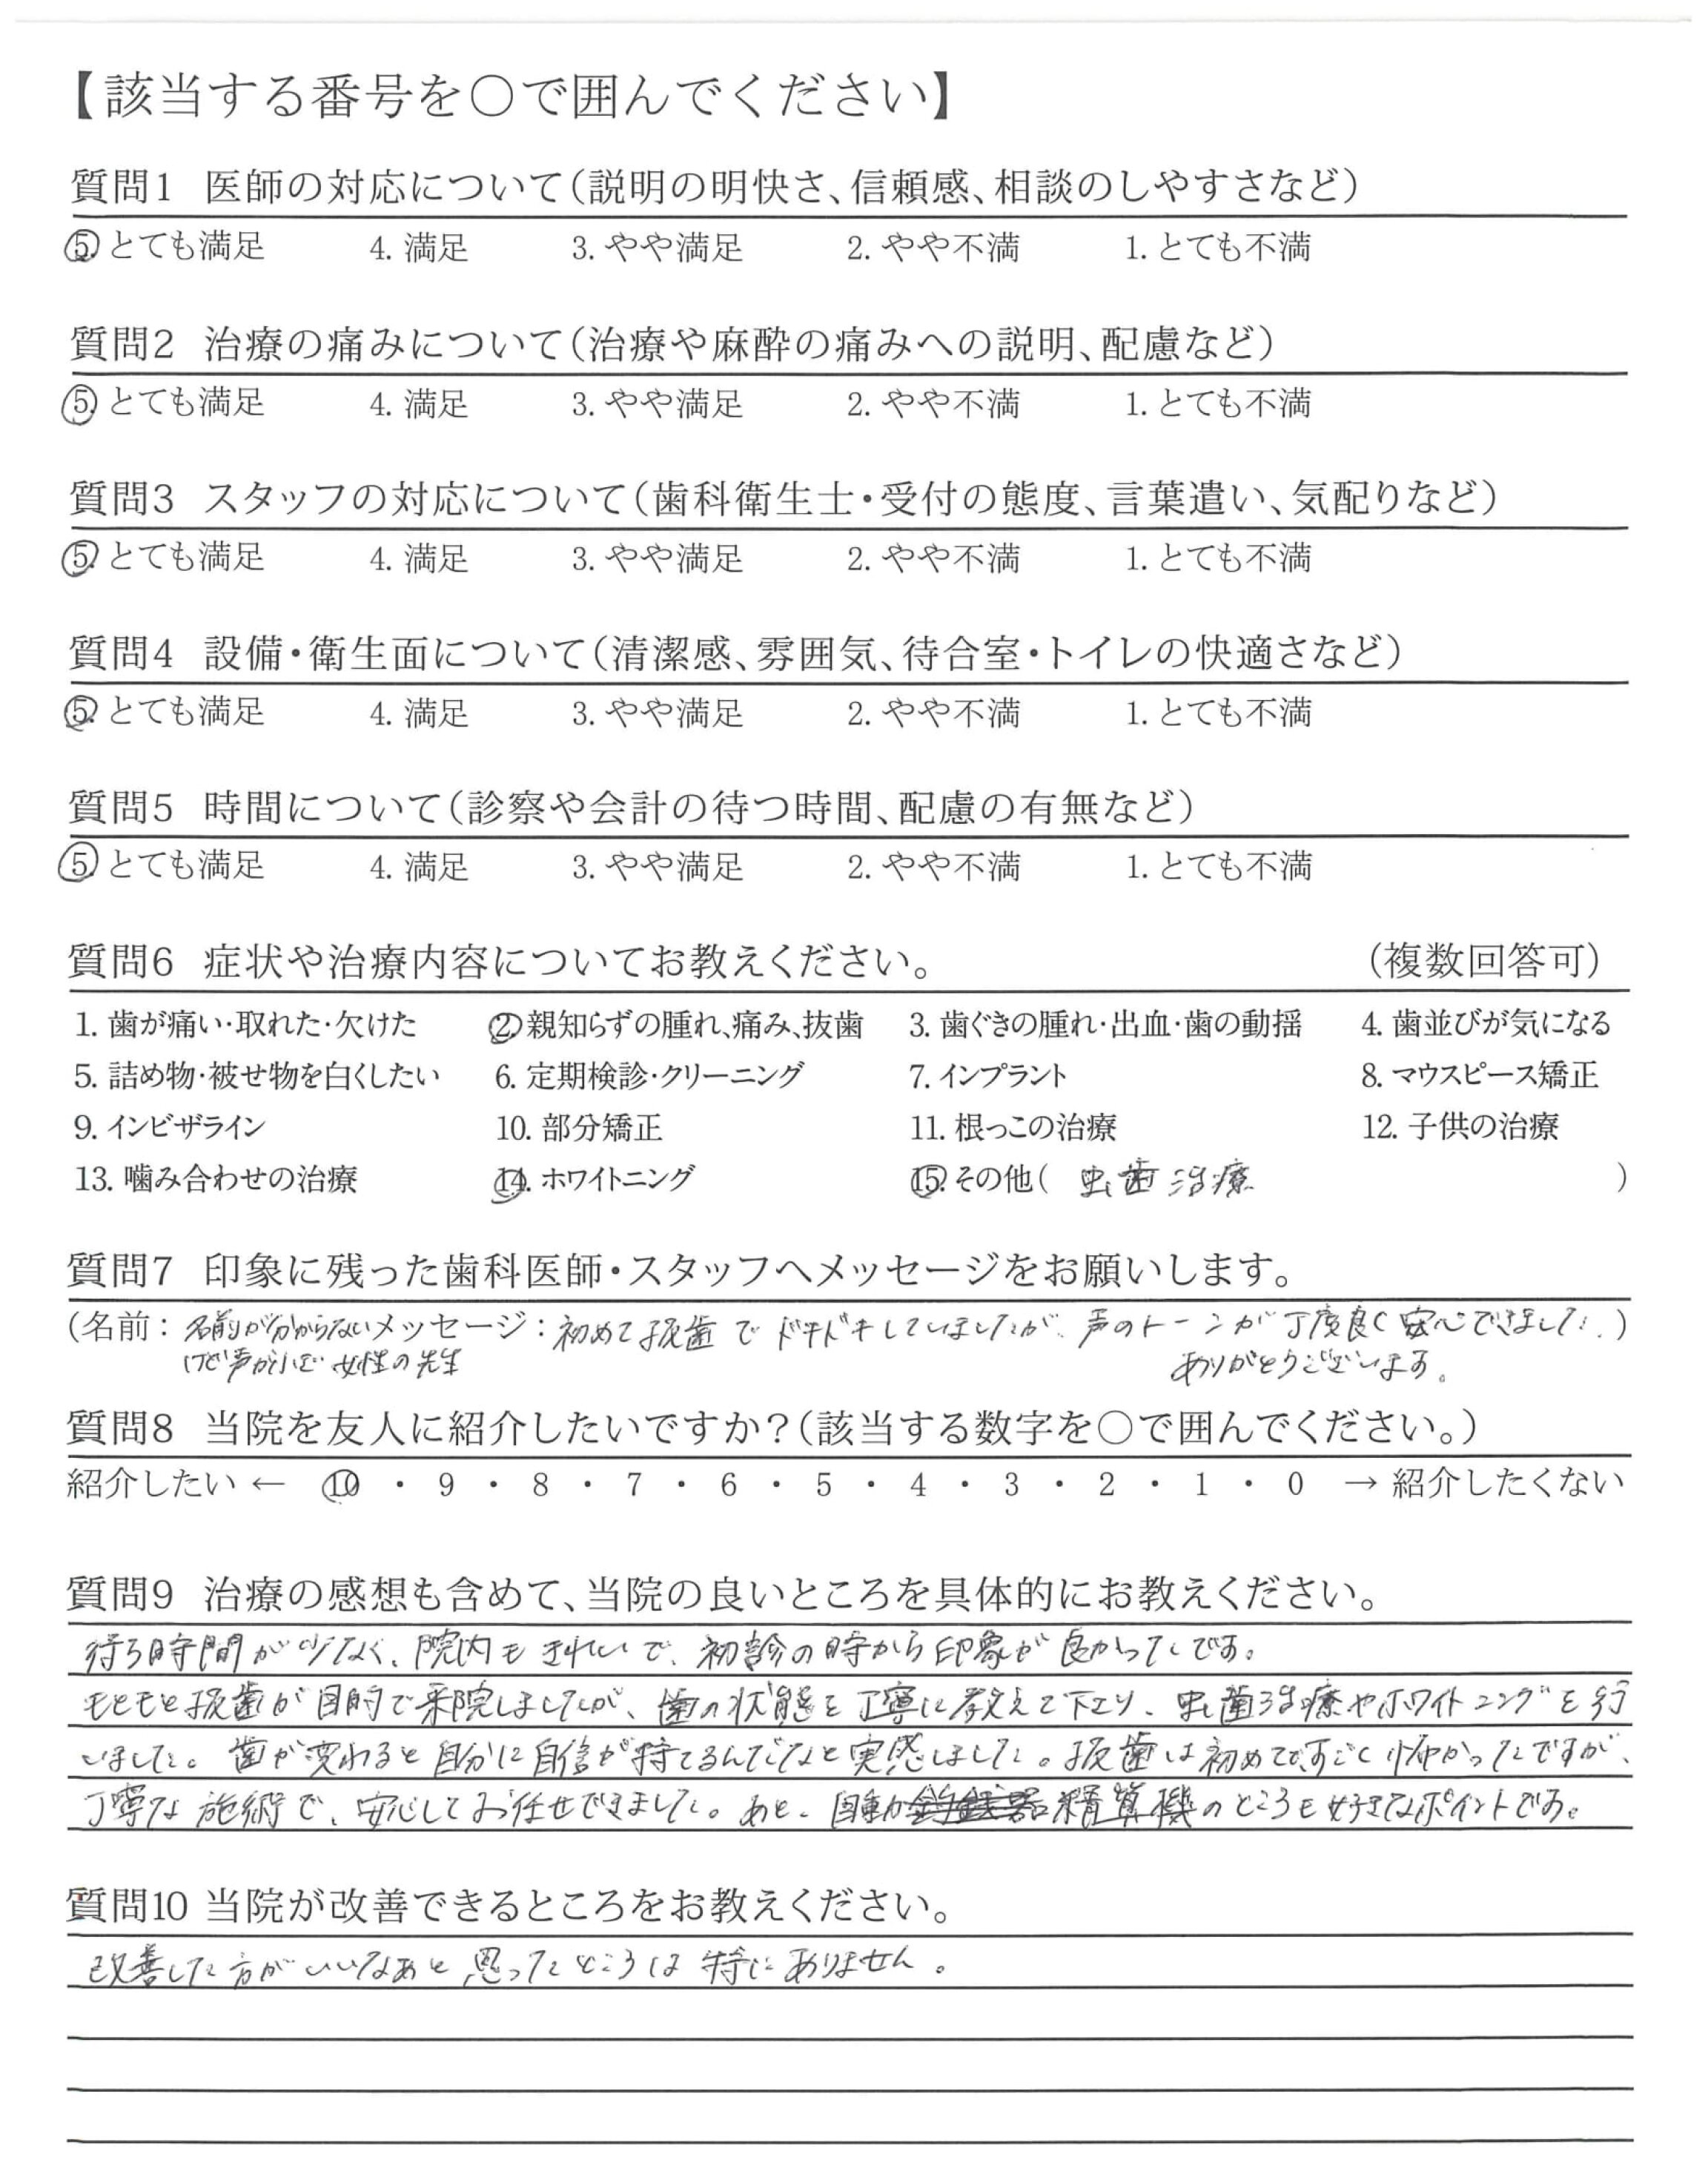 【該当する番号を○で囲んでください】
質問1 医師の対応について(説明の明快さ、信頼感、相談のしやすさなど)
5. とても満足 4. 満足 3. やや満足 2. やや不満 1. とても不満
質問2 治療の痛みについて(治療や麻酔の痛みへの説明、配慮など)
5. とても満足 4. 満足 3. やや満足 2. やや不満 1. とても不満
質問3 スタッフの対応について(歯科衛生士・受付の態度、言葉遣い、気配りなど)
5. とても満足 4. 満足 3. やや満足 2. やや不満 1. とても不満
質問4 設備・衛生面について(清潔感、雰囲気、待合室・トイレの快適さなど)
5. とても満足 4. 満足 3. やや満足 2. やや不満 1. とても不満
質問5 時間について(診察や会計の待つ時間、配慮の有無など)
5. とても満足 4. 満足 3. やや満足 2. やや不満 1. とても不満
質問6 症状や治療内容についてお教えください。 (複数回答可)
1. 歯が痛い・取れた・欠けた 2. 親知らずの腫れ、痛み、抜歯 3. 歯ぐきの腫れ・出血・歯の動揺 4. 歯並びが気になる
5. 詰め物・被せ物を白くしたい 6. 定期検診・クリーニング 7. インプラント 8. マウスピース矯正
9. インビザライン 10. 部分矯正 11. 根っこの治療 12. 子供の治療
13. 噛み合わせの治療 14. ホワイトニング 15. その他( 虫歯治療 )
質問7 印象に残った歯科医師・スタッフへメッセージをお願いします。
(名前: 名前が分からない メッセージ: 初めて抜歯でドキドキしていましたが、声のトーンが丁度良く安心できました。)
けど声が 女性の先生 ありがとうございます。
質問8 当院を友人に紹介したいですか?(該当する数字を○で囲んでください。)
紹介したい ← 10 ・ 9 ・ 8 ・ 7 ・ 6 ・ 5 ・ 4 ・ 3 ・ 2 ・ 1 ・ 0 → 紹介したくない
質問9 治療の感想も含めて、当院の良いところを具体的にお教えください。
待ち時間が少なく、院内もきれいで、初診の時から印象が良かったです。
もともと抜歯が目的で来院しましたが、歯の状態を丁寧に教えて下さり、虫歯治療やホワイトニングを行
いました。歯が変わると自分に自信が持てるんだなと実感しました。抜歯は初めてですごく怖かったですが、
丁寧な施術で、安心してお任せできました。あと、自動精算機のところも好きなポイントです。
質問10 当院が改善できるところをお教えください。
改善した方がいいなあと思ったところは特にありません。